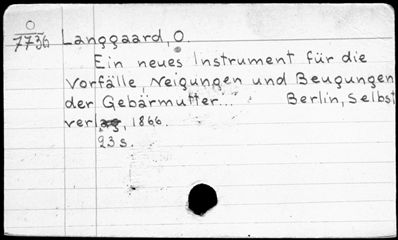 O
7736 Langgaard, O.
Ein neues Instrument für die
Vorfälle, Neigungen und Beugungen
der Gebärmutter... Berlin, Selbst
verlag, 1866.
23 s.